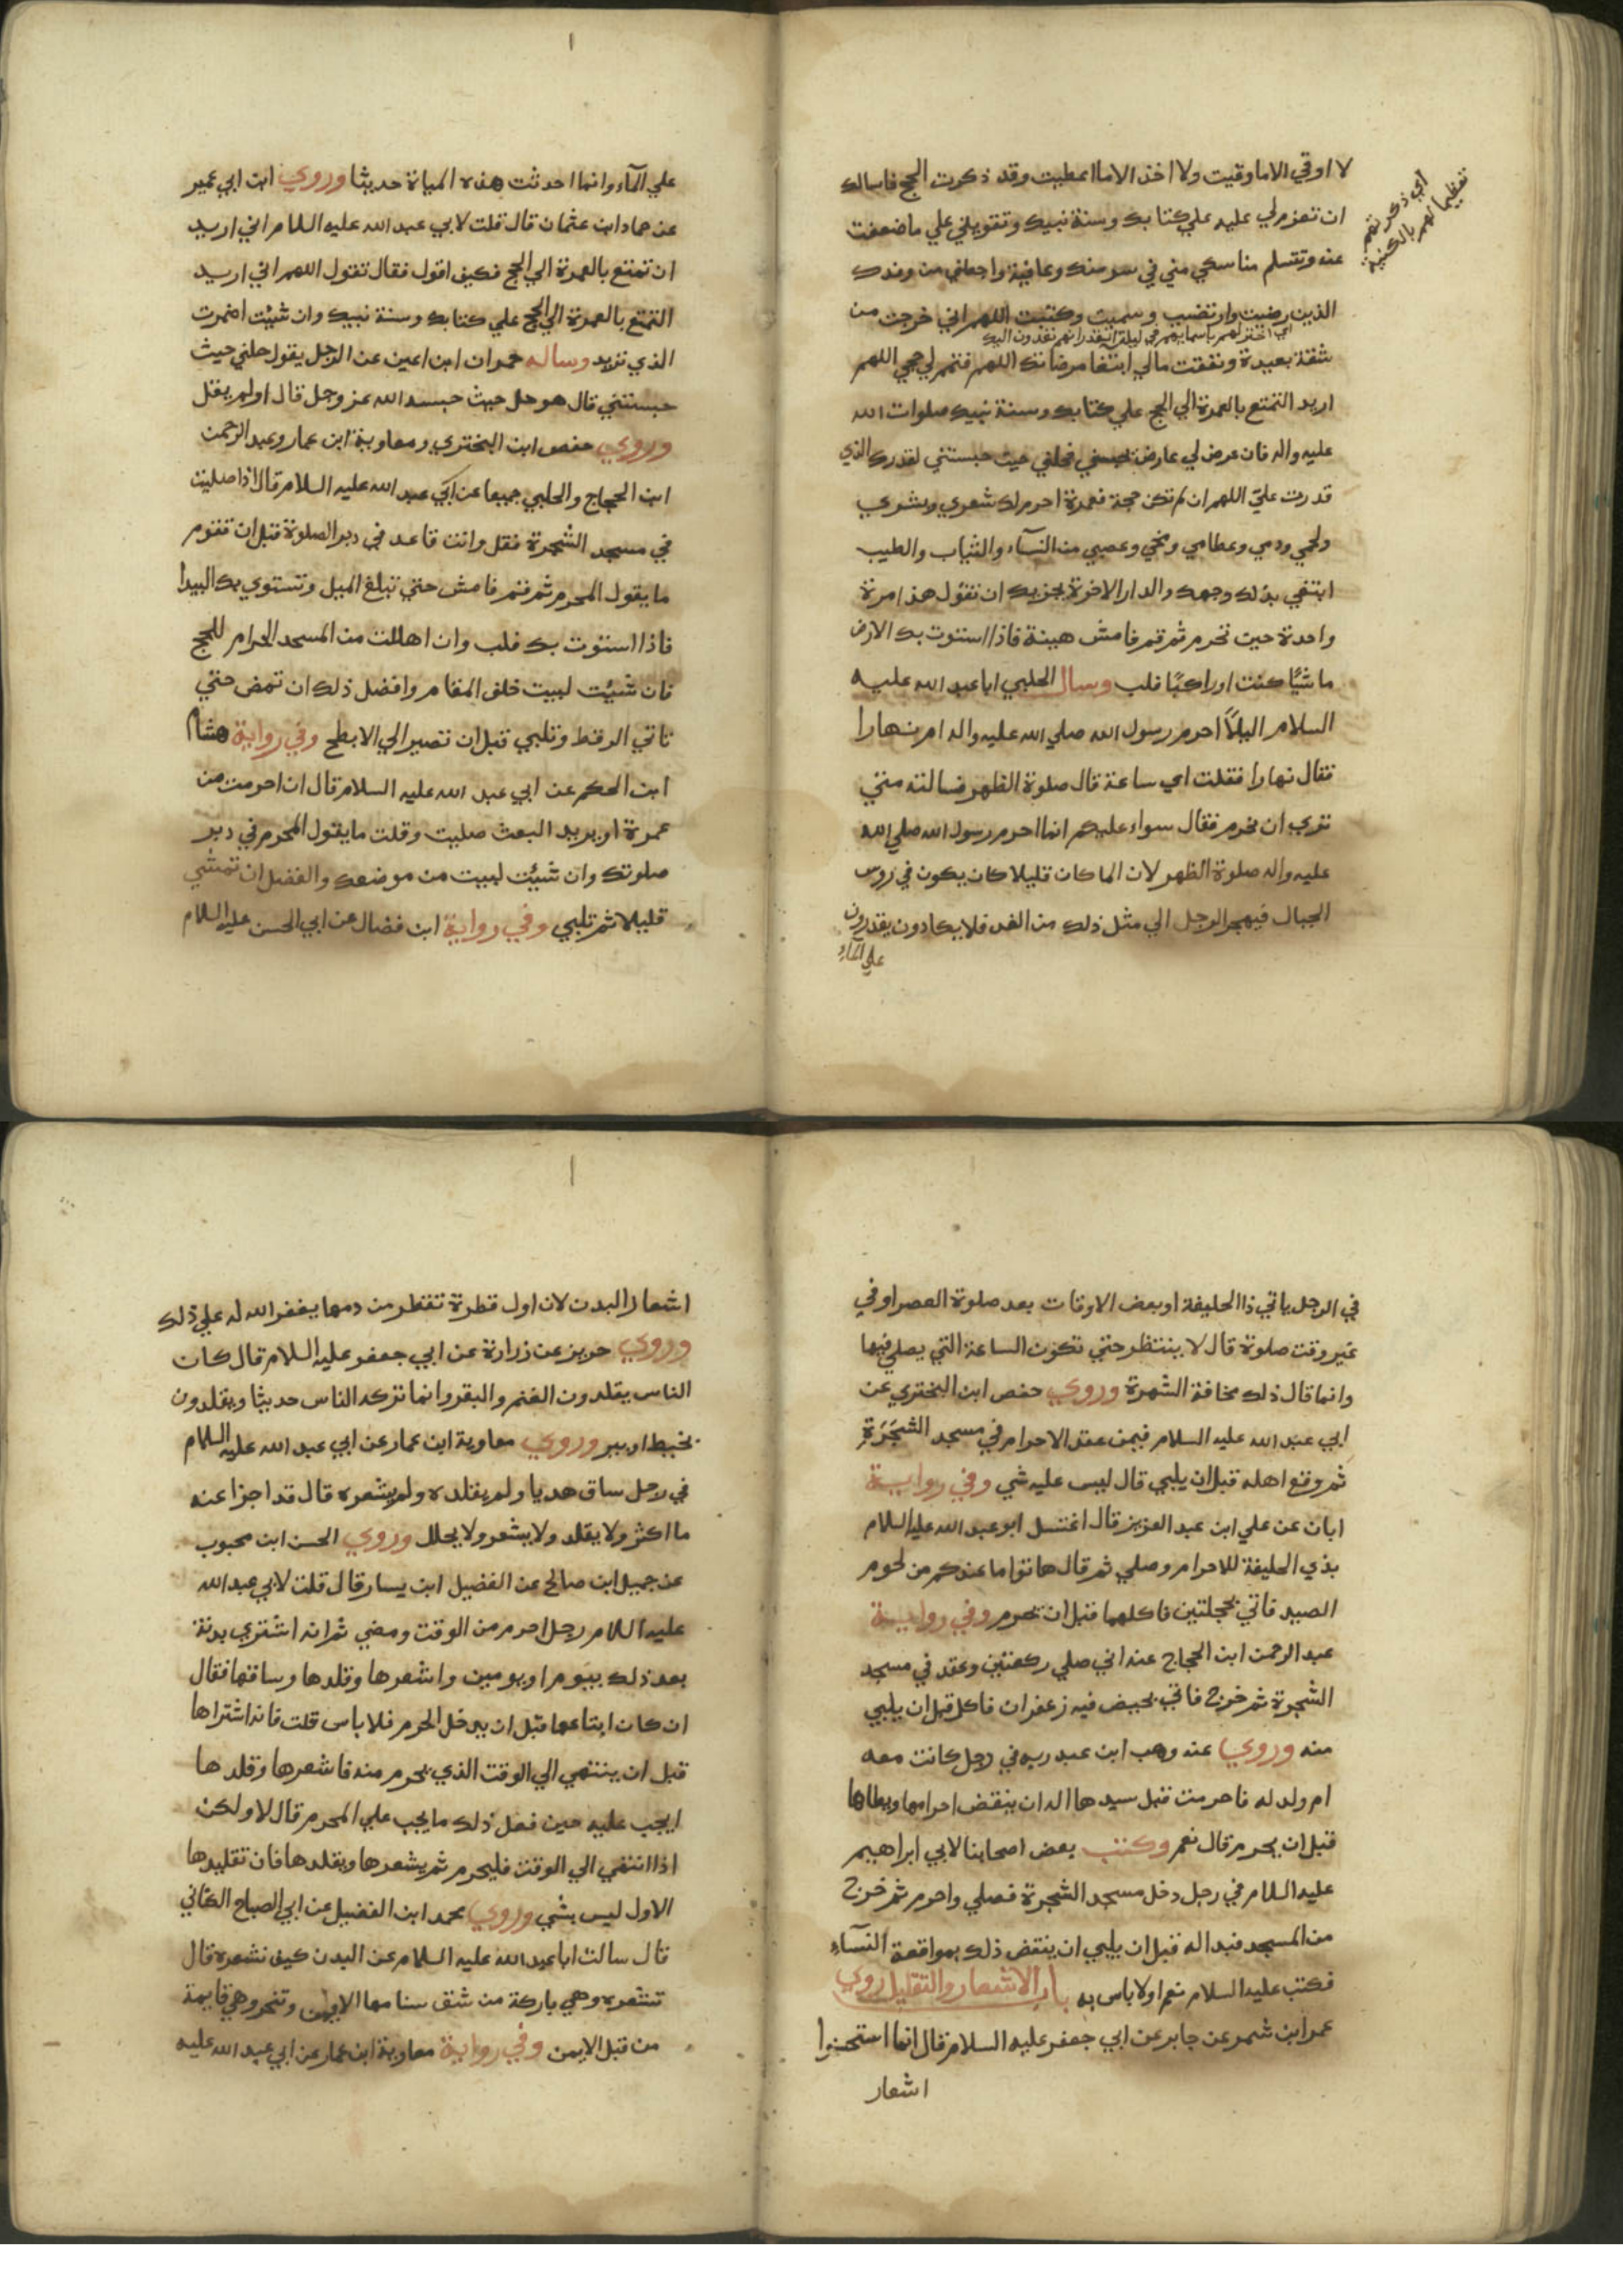 لا اوقي الا ما وقيت ولا اخذ الا ما اعطيت وقد ذكرت الحج فاسالك
ان تعزم لي عليه علي كتابك وسنة نبيك وتقويني علي ما ضعفت
عنه وتتسلم مناسكي مني في يسر منك وعافية واجعلني من وفدك
الذين رضيت وارتضيت وسميت وكتبت اللهم اني خرجت من
اي اخترتهم باسمايهم في ليلة القدر انهم يفدون اليك
شقة بعيدة ونفقت مالي ابتغا مرضاتك اللهم فتمم لي حجي اللهم
اريد التمتع بالعمرة الي الحج علي كتابك وسنة نبيك صلوات الله
عليه واله فان عرض لي عارض يحبسني فحلني حيث حبستني لقدرك الذي
قدرت عليّ اللهم ان لم تكن حجة فعمرة احرم لك شعري وبشري
ولحمي ودمي وعظامي ومخي وعصبي من النسآء والثياب والطيب
ابتغي بذلك وجهك والدار الاخرة يجزيك ان تقول هذا مرة
واحدة حين تحرم ثم قم فامش هينة فاذا استوت بك الارض
ماشيًا كنت او راكبًا فلب وسال الحلبي ابا عبد الله عليه
السلام اليلاً احرم رسول الله صلي الله عليه واله ام نهارا
فقال نهارا فقلت اي ساعة قال صلوة الظهر فسالته متي
تري ان نحرم فقال سواء عليكم انما احرم رسول الله صلي الله
عليه واله صلوة الظهر لان الما كان قليلا كان يكون في روس
الجبال فيهجر الرجل الي مثل ذلك من الغد فلا يكادون يقدرون
علي المآء
اي ذكرتهم
تعظيما لهم بالكنية
علي المآء وانما احدثت هذه المياة حديثا وروي ابن ابي عمير
عن حماد ابن عثمان قال قلت لابي عبد الله عليه السلام اني اريد
ان تمتع بالعمرة الي الحج فكيف اقول فقال تقول اللهم اني اريد
التمتع بالعمرة الي الحج علي كتابك وسنة نبيك وان شيئت اضمرت
الذي تريد وساله حمران ابن اعين عن الرجل يقول حلني حيث
حبستني قال هو حل حيث حبسه الله عز وجل قال اولم يقل
وروي حفص ابن البختري ومعاوية ابن عمار وعبد الرحمن
ابن الحجاج والحلبي جميعا عن ابي عبد الله عليه السلام قال اذا صليت
في مسجد الشجرة فقل وانت قاعد في دبر الصلوة قبل ان تقوم
ما يقول المحرم ثم قم فامش حتي تبلغ الميل وتستوي بك البيدا
فاذا استوت بك فلب وان اهللت من المسجد الحرام للحج
فان شيئت لبيت خلف المقام وافضل ذلك ان تمض حتي
تاتي الرقط وتلبي قبل ان تصير الي الابطح وفي رواية هشام
ابن الحكم عن ابي عبد الله عليه السلام قال ان احرمت من
عمرة او بريد البعث صليت وقلت ما يقول المحرم في دبر
صلوتك وان شيئت لبيت من موضعك والفضل ان تمشي
قليلا ثم تلبي وفي رواية ابن فضال عن ابي الحسن عليه السلام
في الرجل ياتي ذا الحليفة او بعض الاوقات بعد صلوة العصر او في
غير وقت صلوة قال لا ينتظر حتي تكون الساعة التي يصلي فيها
وانما قال ذلك مخافة الشهرة وروي حفص ابن البختري عن
ابي عبد الله عليه السلام فيمن عقد الاحرام في مسجد الشجرة
ثم وقع اهله قبل ان يلبي قال ليس عليه شي وفي رواية
ابان عن علي ابن عبد العزيز قال اغتسل ابو عبد الله عليه السلام
بذي الحليفة للاحرام وصلي ثم قال هاتوا ما عندكم من لحوم
الصيد فاتي بحجلتين فاكلهما قبل ان يحرم وفي رواية
عبد الرحمن ابن الحجاج عنه اني صلي ركعتين وعقد في مسجد
الشجرة ثم خرج فاتي بخبيص فيه زعفران فاكل قبل ان يلبي
منه وروي عنه وهب ابن عبد ربه في رجل كانت معه
ام ولد له فاحرمت قبل سيدها اله ان ينقض احرامها ويطاها
قبل ان يحرم قال نعم وكتب بعض اصحابنا لابي ابراهيم
عليه السلام في رجل دخل مسجد الشجرة فصلي واحرم ثم خرج
من المسجد فبدا له قبل ان يلبي ان ينقض ذلك بمواقعة النسآء
فكتب عليه السلام نعم او لا باس به باب الاشعار والتقليل روي
عمر ابن شمر عن جابر عن ابي جعفر عليه السلام قال انما استحسنوا
اشعار
اشعار البدن لان اول قطرة تقطر من دمها يغفر الله له علي ذلك
وروي حريز عن زرارة عن ابي جعفر عليه السلام قال كان
الناس يقلدون الغنم والبقر وانما تركه الناس حديثا ويقلدون
بخيط او سير وروي معاوية ابن عمار عن ابي عبد الله عليه السلام
في رجل ساق هديا ولم يقلده ولم يشعره قال قد اجزا عنه
ما اكثر ولا يقلد ولا يشعر ولا يجلل وروي الحسن ابن محبوب
عن جميل ابن صالح عن الفضيل ابن يسار قال قلت لابي عبد الله
عليه السلام رجل احرم من الوقت ومضي ثم انه اشتري بدنة
بعد ذلك بيوم او يومين واشعرها وقلدها وساقها فقال
ان كان ابتاعها قبل ان يدخل الحرم فلا باس قلت فانه اشتراها
قبل ان ينتهي الي الوقت الذي يحرم منه فاشعرها وقلدها
ايجب عليه حين فعل ذلك ما يجب علي المحرم قال لا ولكن
اذا انتهي الي الوقت فليحرم ثم يشعرها ويقلدها فان تقليدها
الاول ليس بشي وروي محمد ابن الفضيل عن ابي الصباح الكناني
قال سالت ابا عبد الله عليه السلام عن البدن كيف نشعره قال
تشعره وهي باركة من شق سنامها الايمن وتنحر وهي قايمة
من قبل الايمن وفي رواية معاوية ابن عمار عن ابي عبد الله عليه